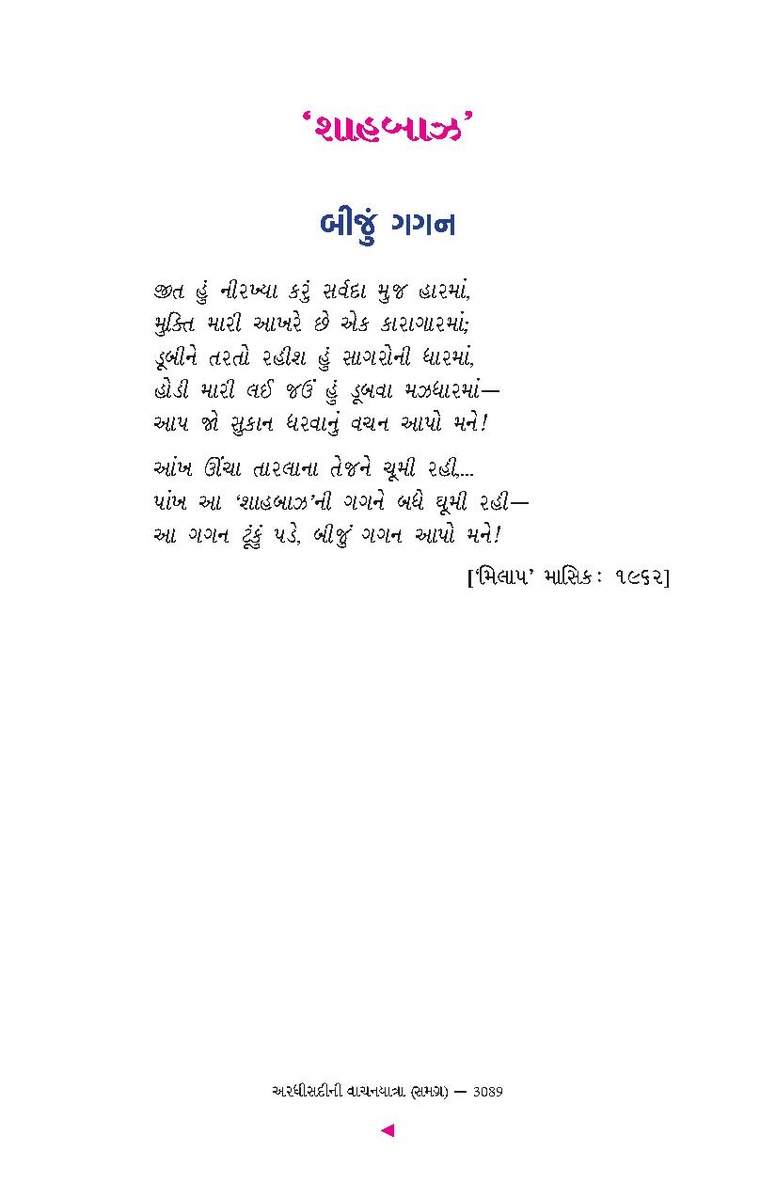 ‘શાહબાઝ’
બીજું ગગન
જીત હું નીરખ્યા કરું સર્વદા મુજ હારમાં,
મુક્તિ મારી આખરે છે એક કારાગારમાં;
ડૂબીને તરતો રહીશ હું સાગરોની ધારમાં,
હોડી મારી લઈ જઉં હું ડૂબવા મઝધારમાં—
આપ જો સુકાન ધરવાનું વચન આપો મને!
આંખ ઊંચા તારલાના તેજને ચૂમી રહી,...
પાંખ આ ‘શાહબાઝ’ની ગગને બધે ઘૂમી રહી—
આ ગગન ટૂંકું પડે, બીજું ગગન આપો મને!
[‘મિલાપ’ માસિક: ૧૯૬૨]
અરધીસદીની વાચનયાત્રા (સમગ્ર) — 3089
◄